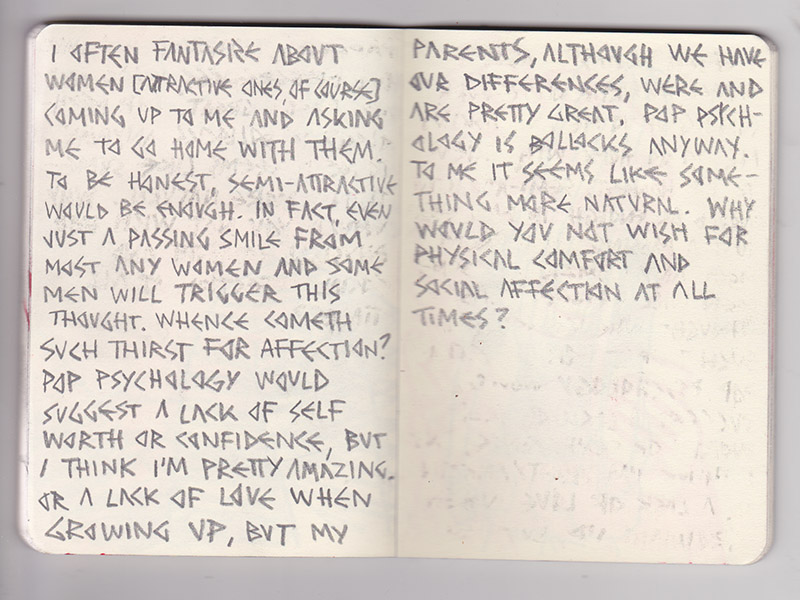 I OFTEN FANTASIZE ABOUT
WOMEN [ATTRACTIVE ONES, OF COURSE]
COMING UP TO ME AND ASKING
ME TO GO HOME WITH THEM.
TO BE HONEST, SEMI-ATTRACTIVE
WOULD BE ENOUGH. IN FACT, EVEN
JUST A PASSING SMILE FROM
MOST ANY WOMEN AND SOME
MEN WILL TRIGGER THIS
THOUGHT. WHENCE COMETH
SUCH THIRST FOR AFFECTION?
POP PSYCHOLOGY WOULD
SUGGEST A LACK OF SELF
WORTH OR CONFIDENCE, BUT
I THINK I'M PRETTY AMAZING.
OR A LACK OF LOVE WHEN
GROWING UP, BUT MY
PARENTS, ALTHOUGH WE HAVE
OUR DIFFERENCES, WERE AND
ARE PRETTY GREAT. POP PSYCH-
OLOGY IS BOLLOCKS ANYWAY.
TO ME IT SEEMS LIKE SOME-
THING MORE NATURAL. WHY
WOULD YOU NOT WISH FOR
PHYSICAL COMFORT AND
SOCIAL AFFECTION AT ALL
TIMES?